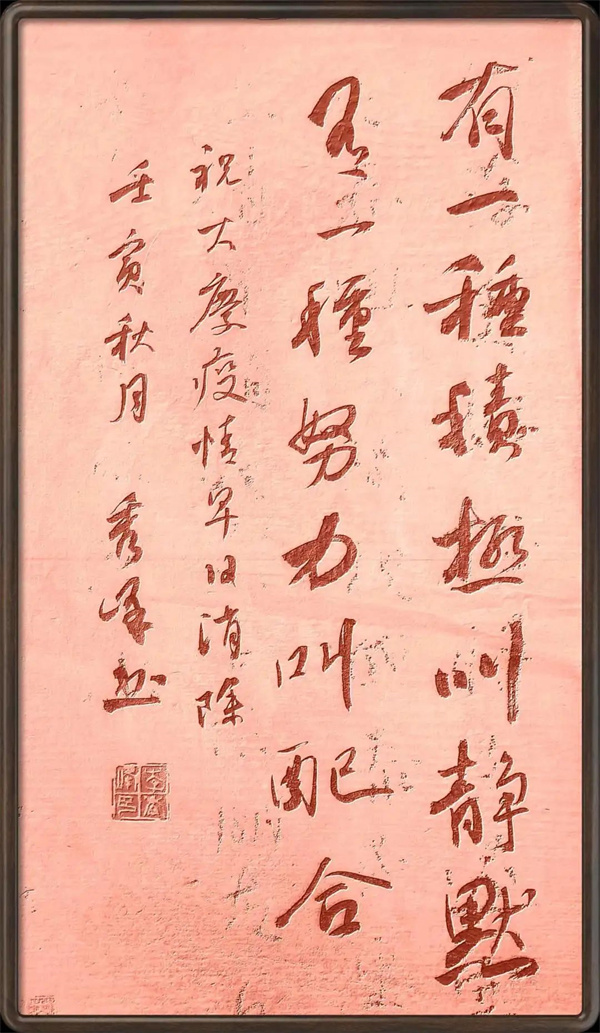 有一種積極叫静默
有一種努力叫配合
祝大慶疫情早日消除
壬寅秋月 秀峰书